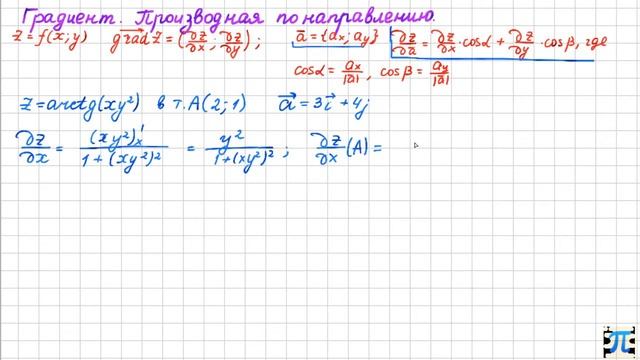 Градиент. Производная по направлению.
z = f(x; y) grad z = (∂z/∂x; ∂z/∂y); a̅ = {aₓ; a_y} ∂z/∂a = ∂z/∂x · cosα + ∂z/∂y · cosβ, где
cosα = aₓ/|a̅|, cosβ = a_y/|a̅|
z = arctg(xy²) в т. A(2; 1) a⃗ = 3i⃗ + 4j
∂z/∂x = (xy²)'ₓ / 1 + (xy²)² = y² / 1 + (xy²)² ; ∂z/∂x (A) =
π